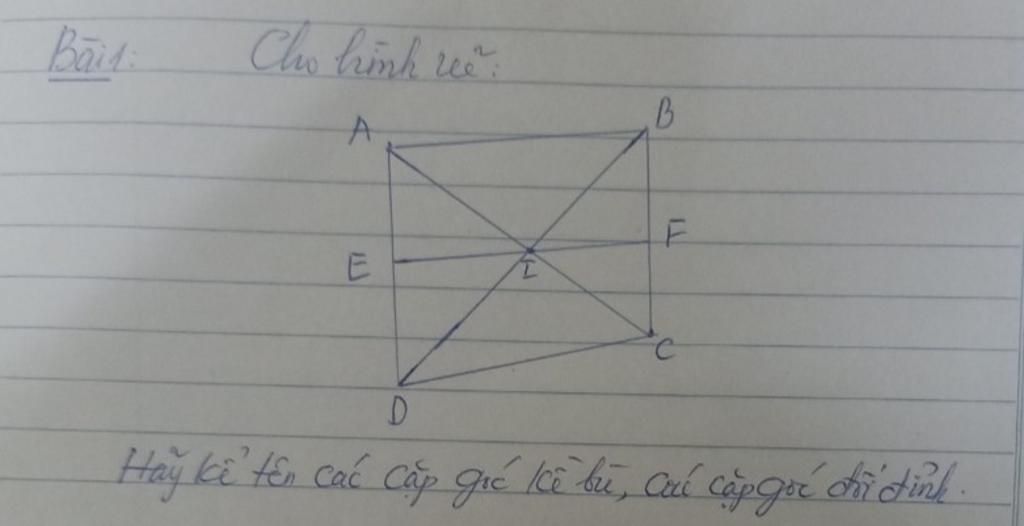 Bài 1: Cho hình vẽ:
A B
E I F
C
D
Hãy kể tên các cặp góc kề bù, các cặp góc đối đỉnh.